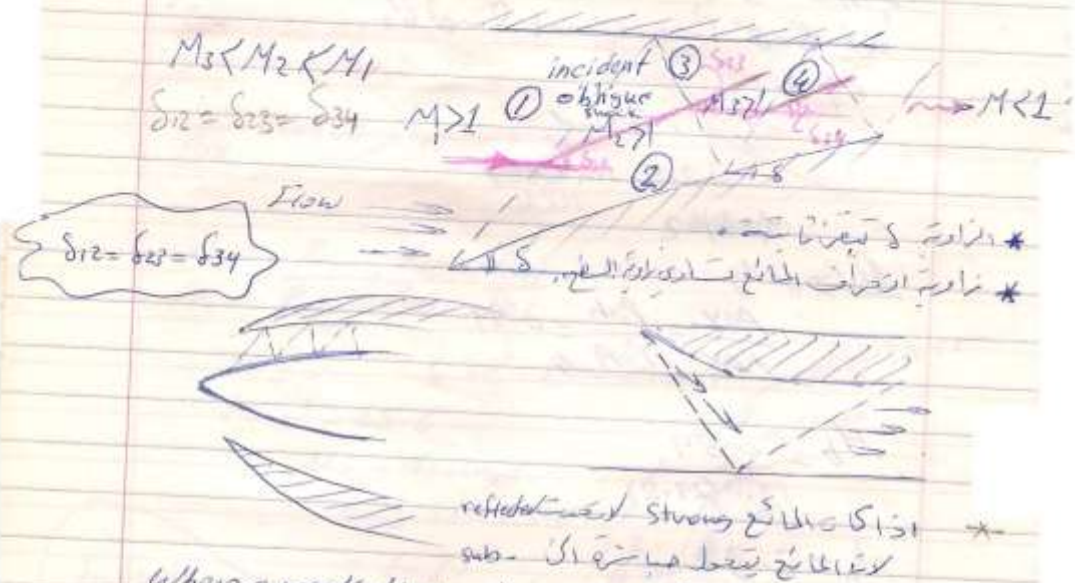 M3 < M2 < M1
δ12 = δ23 = δ34
M1 > 1
①
incident
oblique
shock
M2 > 1
③
δ23
M3 > 1
④
δ34
M < 1
②
δ
Flow
δ
δ12 = δ23 = δ34
* الزاوية δ تبقى ثابتة.
* زاوية انحراف المائع تساوي زاوية السطح.
اذا كان المائع Strong لا يحدث reflected
لان المائع يتحول مباشرة الى sub-